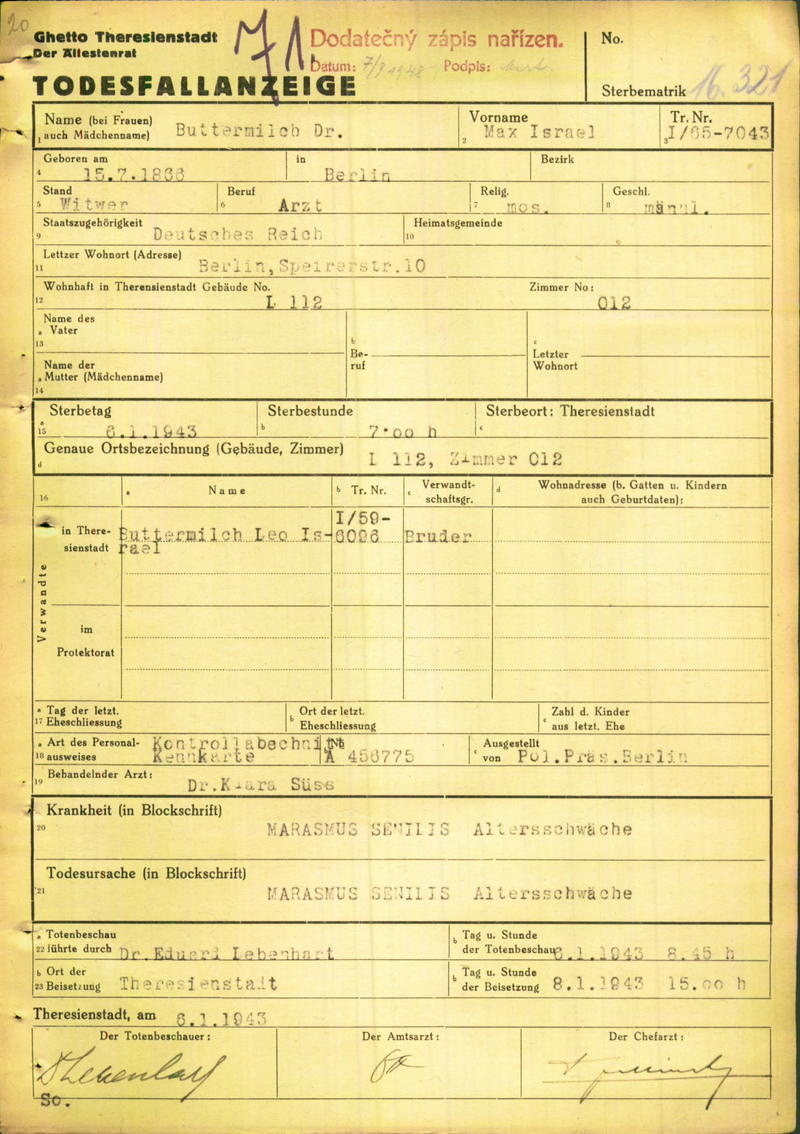 20
Ghetto Theresienstadt
Der Ältestenrat
TODESFALLANZEIGE
Dodatečný zápis nařízen.
Datum: Podpis:
No.
Sterbematrik 16. 321
Name (bei Frauen)
1 auch Mädchenname) Buttermilch Dr.
Vorname
2 Max Israel
Tr. Nr.
3 I/65-7043
Geboren am
4 15.7.1866
in Berlin
Bezirk
Stand
5 Witwer
Beruf
6 Arzt
Relig.
7 mos.
Geschl.
8 männl.
Staatszugehörigkeit
9 Deutsches Reich
Heimatsgemeinde
10
Lettzer Wohnort (Adresse)
11 Berlin,Speirerstr.10
Wohnhaft in Therensienstadt Gebäude No.
12 L 112
Zimmer No:
012
Name des
a Vater
13
b
Be-
ruf
c
Letzter
Wohnort
Name der
a Mutter (Mädchenname)
14
Sterbetag
a
15 6.1.1943
Sterbestunde
b 7.00 h
Sterbeort: Theresienstadt
c
Genaue Ortsbezeichnung (Gebäude, Zimmer)
d L 112, Zimmer 012
16
a Name
b Tr. Nr.
c Verwandt-
schaftsgr.
d Wohnadresse (b. Gatten u. Kindern
auch Geburtdaten):
Verwandte
in There-
sienstadt
Buttermilch Leo Is-
rael
I/59-
6096
Bruder
im
Protektorat
a Tag der letzt.
17 Eheschliessung
b Ort der letzt.
Eheschliessung
c Zahl d. Kinder
aus letzt. Ehe
a Art des Personal-
18 ausweises
Kontrollabschni
Kennkarte
b Nr.
A 456775
c Ausgestellt
von Pol.Präs.Berlin
Behandelnder Arzt:
19 Dr.Klara Süss
Krankheit (in Blockschrift)
20 MARASMUS SENILIS Altersschwäche
Todesursache (in Blockschrift)
21 MARASMUS SENILIS Altersschwäche
a Totenbeschau
22 führte durch Dr.Eduard Lebenhart
b Tag u. Stunde
der Totenbeschau 6.1.1943 8.45 h
b Ort der
23 Beisetzung Theresienstadt
b Tag u. Stunde
der Beisetzung 8.1.1943 15.00 h
Theresienstadt, am 6.1.1943
Der Totenbeschauer:
Der Amtsarzt:
Der Chefarzt:
So.